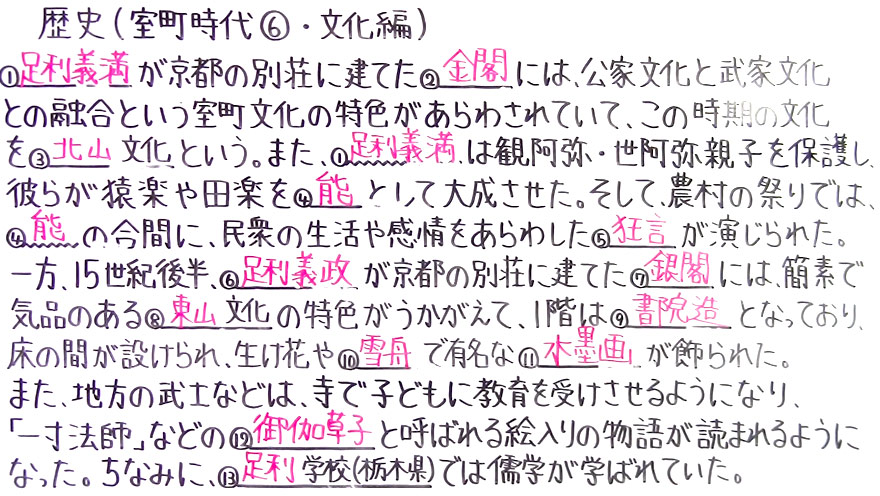 歴史(室町時代⑥・文化編)
①足利義満が京都の別荘に建てた②金閣には、公家文化と武家文化
との融合という室町文化の特色があらわされていて、この時期の文化
を③北山文化という。また、①足利義満は観阿弥・世阿弥親子を保護し、
彼らが猿楽や田楽を④能として大成させた。そして、農村の祭りでは、
④能の合間に、民衆の生活や感情をあらわした⑤狂言が演じられた。
一方、15世紀後半、⑥足利義政が京都の別荘に建てた⑦銀閣には、簡素で
気品のある⑧東山文化の特色がうかがえて、1階は⑨書院造となっており、
床の間が設けられ、生け花や⑩雪舟で有名な⑪水墨画が飾られた。
また、地方の武士などは、寺で子どもに教育を受けさせるようになり、
「一寸法師」などの⑫御伽草子と呼ばれる絵入りの物語が読まれるように
なった。ちなみに、⑬足利学校(栃木県)では儒学が学ばれていた。